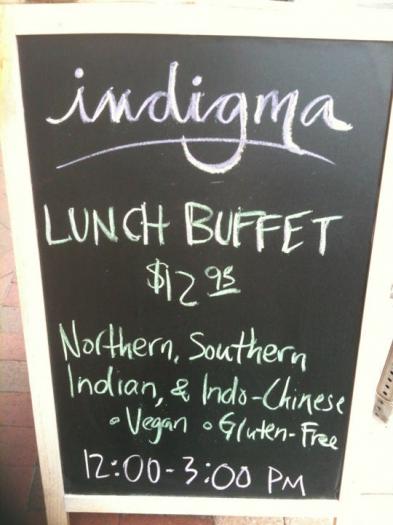 indigma
LUNCH BUFFET
$12 95
Northern, Southern
Indian, & Indo-Chinese
• Vegan • Gluten-Free
12:00-3:00 PM